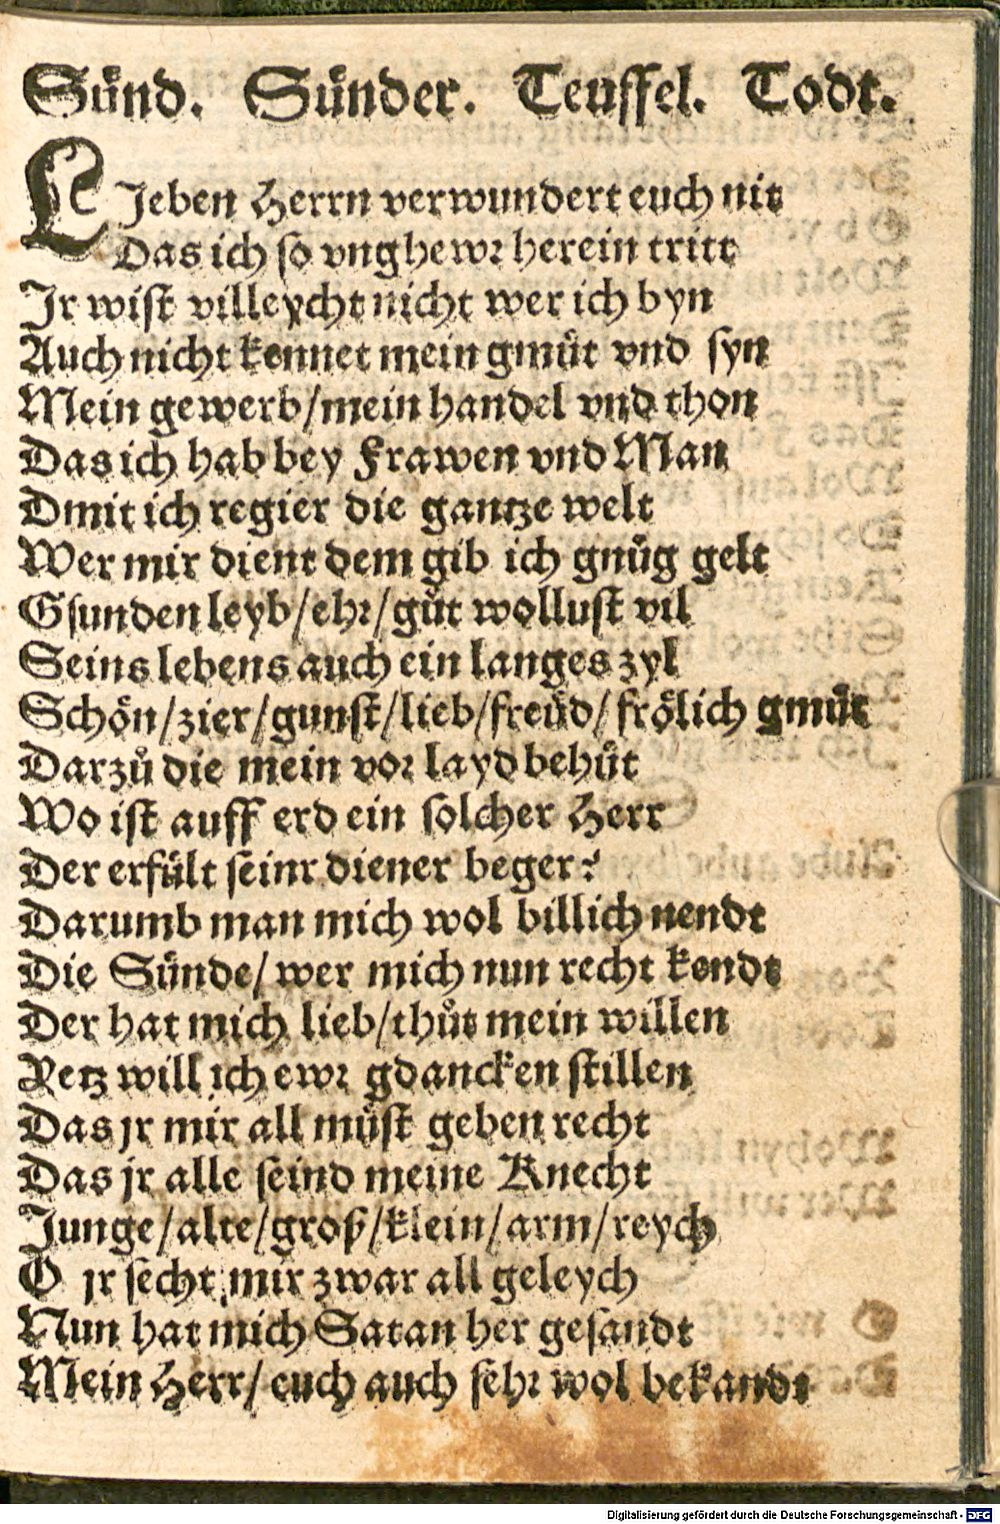 Sünd. Sünder. Teuffel. Todt.
LJeben Herrn verwundert euch nit
Das ich so vnghewr herein tritt
Jr wist villeycht nicht wer ich byn
Auch nicht kennet mein gmüt vnd syn
Mein gewerb/mein handel vnd thon
Das ich hab bey Frawen vnd Man
Dmit ich regier die gantze welt
Wer mir dient dem gib ich gnůg gelt
Gsunden leyb/ehr/gůt wollust vil
Seins lebens auch ein langes zyl
Schön/zier/gunst/lieb/freüd/frölich gmüt
Darzů die mein vor layd behüt
Wo ist auff erd ein solcher Herr
Der erfült seinr diener beger?
Darumb man mich wol billich nendt
Die Sünde/wer mich nun recht kendt
Der hat mich lieb/thůt mein willen
Yetz will ich ewr gdancken stillen
Das jr mir all müst geben recht
Das jr alle seind meine Knecht
Junge/alte/groß/klein/arm/reych
O jr secht mir zwar all geleych
Nun hat mich Satan her gesandt
Mein Herr/euch auch sehr wol bekandt
Digitalisierung gefördert durch die Deutsche Forschungsgemeinschaft - DFG